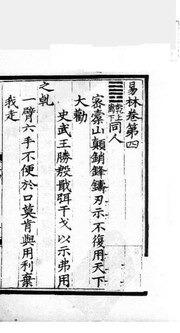 易林卷第四
乾上
離下
同人
密橐山顛銷鋒鑄刃示不復用天下
大勸
史武王勝殷戢弭干戈以示弗用
之乹
一臂六手不便於口莫肯與用利棄
我走